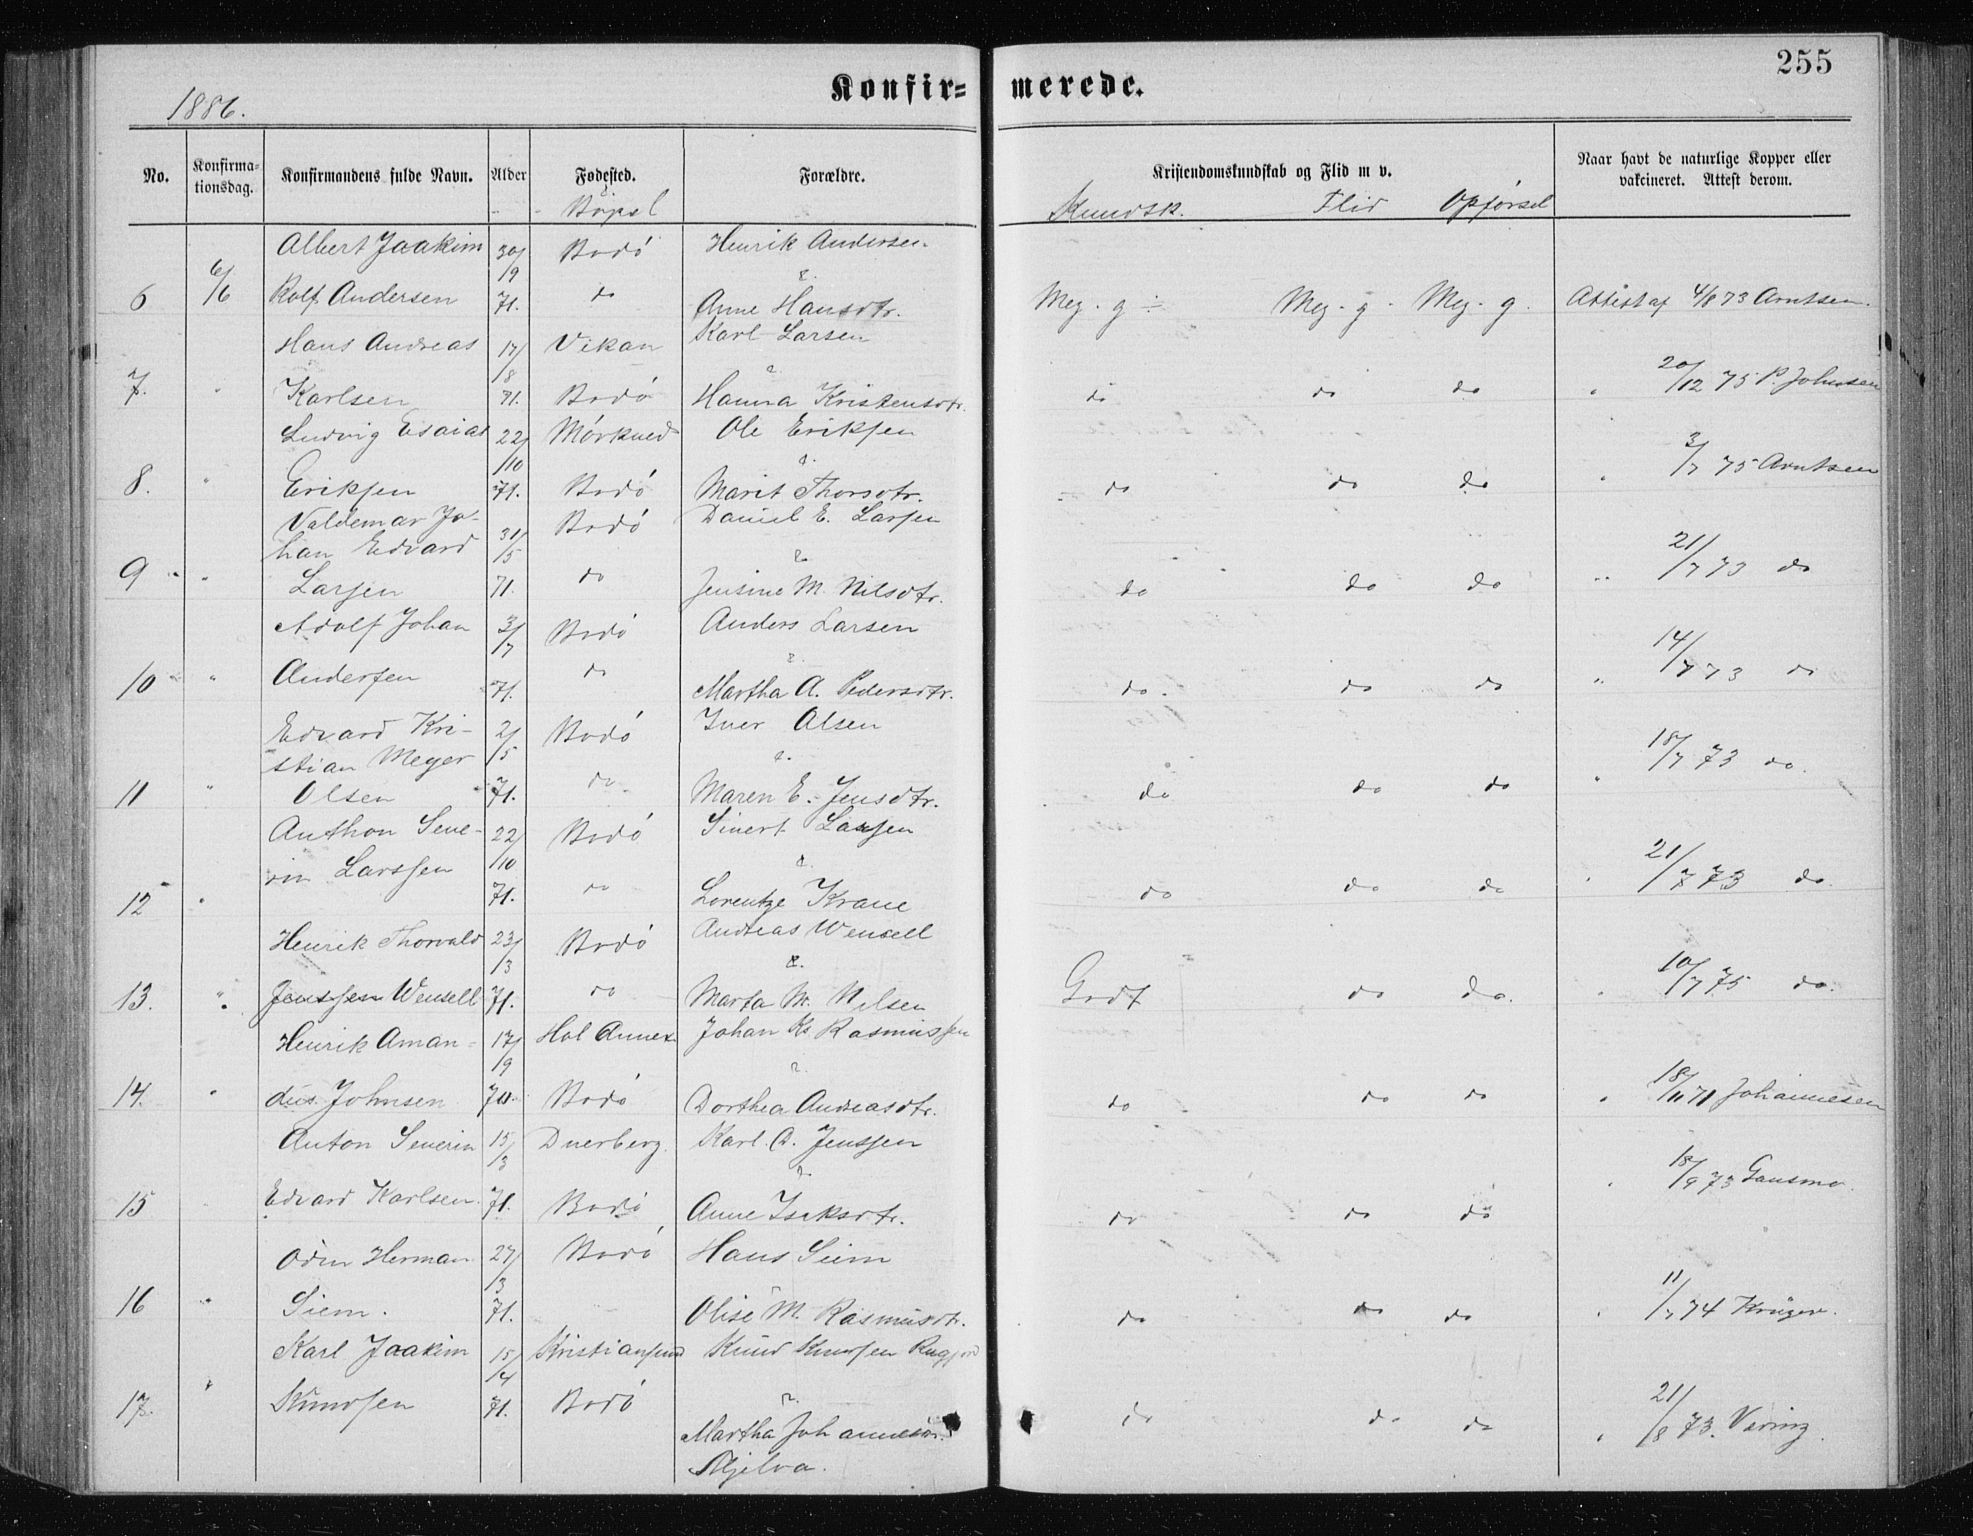 255
Konfir= merede.
1886.
No. Konfirma=tionsdag. Konfirmandens fulde Navn. Alder Fødested. Forældre. Kristendomskundskab og Flid m v. Naar havt de naturlige Kopper eller vakcineret. Attest derom.
Bopæl Kundsk. Flid Opførsel
Albert Joakim 30/9 Bodó Henrik Andersen
6 6/6 Rolf Andersen 71. do & Anne Hansdtr. Meg. g ÷ Meg. g. Meg. g. Attest af 4/8 73 Arntsen.
Hans Andreas 17/8 Vikan Karl Larsen
7. " Karlsen 71. Bodó & Hanna Kristensdtr. do do do " 20/12 75 P. Johnsen
Ludvig Esaias 22/10 Mórkued Ole Eriksen
8. " Eriksen 71. Bodó & Marit Thorsdtr. do do do " 3/7 75 Arntsen
Valdemar Jo- 31/5 Bodó Daniel E. Larsen
han Edvard
9 " Larsen 71. do & Jensine M. Nilsdtr. do do do " 21/7 73 do
Adolf Johan 3/7 Bodó Anders Larsen
10 " Andersen 71. do & Martha A. Pedersdtr. do. do do " 14/7 73 do
Edvard Kri- 2/5 Bodó Iver Olsen
stian Meyer
11 " Olsen 71. do & Maren E. Jensdtr. do do do " 18/7 73 do.
Anthon Seve- 22/10 Bodó Sivert Larsen
rin Larssen
12 " 71. do & Lorentze Krane do do do " 21/7 73 do.
Henrik Thorvald 23/3 Bodó Andreas Wensell
13. " Jenssen Wensell 71. do & Marta M. Nilsen Godt do do. " 10/7 75 do.
Henrik Aman- 17/9 Hol Annex Johan Ks Rasmussen
14. " dus Johnsen 70. Bodó & Dorthea Andreasdtr. do do do " 18/11 71 Johannesen
Anton Severin 15/3 Duerberg Karl A. Jenssen
15 Edvard Karlsen. 71. Bodó & Anne Isaksdtr. do do do " 18/9 73 Gausmo.
Odin Herman 27/3 Bodó Hans Siem
16 " Siem. 71. Olise M. Rasmusdtr. do do do " 11/7 74 Krüger.
Karl Joakim 15/4 Kristiansund Knud Knudsen
17. " Knudsen 71. Bodó & do do do " 21/8 73. Vering.
Martha Johannesdtr.
Mjelva.